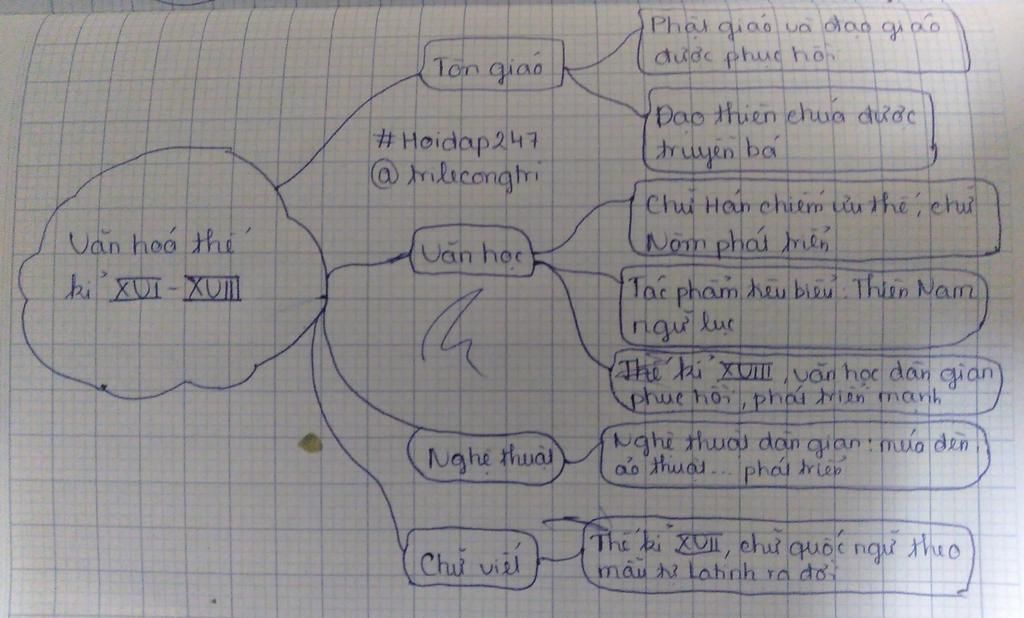 Văn hoá thế
kỉ XVI - XVIII
Tôn giáo
Phật giáo và đạo giáo
được phục hồi
Đạo thiên chúa được
truyền bá
#Hoidap247
@trilecongtri
Văn học
Chữ Hán chiếm ưu thế, chữ
Nôm phát triển
Tác phẩm tiêu biểu: Thiên Nam
ngữ lục
Thế kỉ XVIII, văn học dân gian
phục hồi, phát triển mạnh
Nghệ thuật
Nghệ thuật dân gian: múa đèn,
ảo thuật... phát triển
Chữ viết
Thế kỉ XVII, chữ quốc ngữ theo
mẫu tự Latinh ra đời